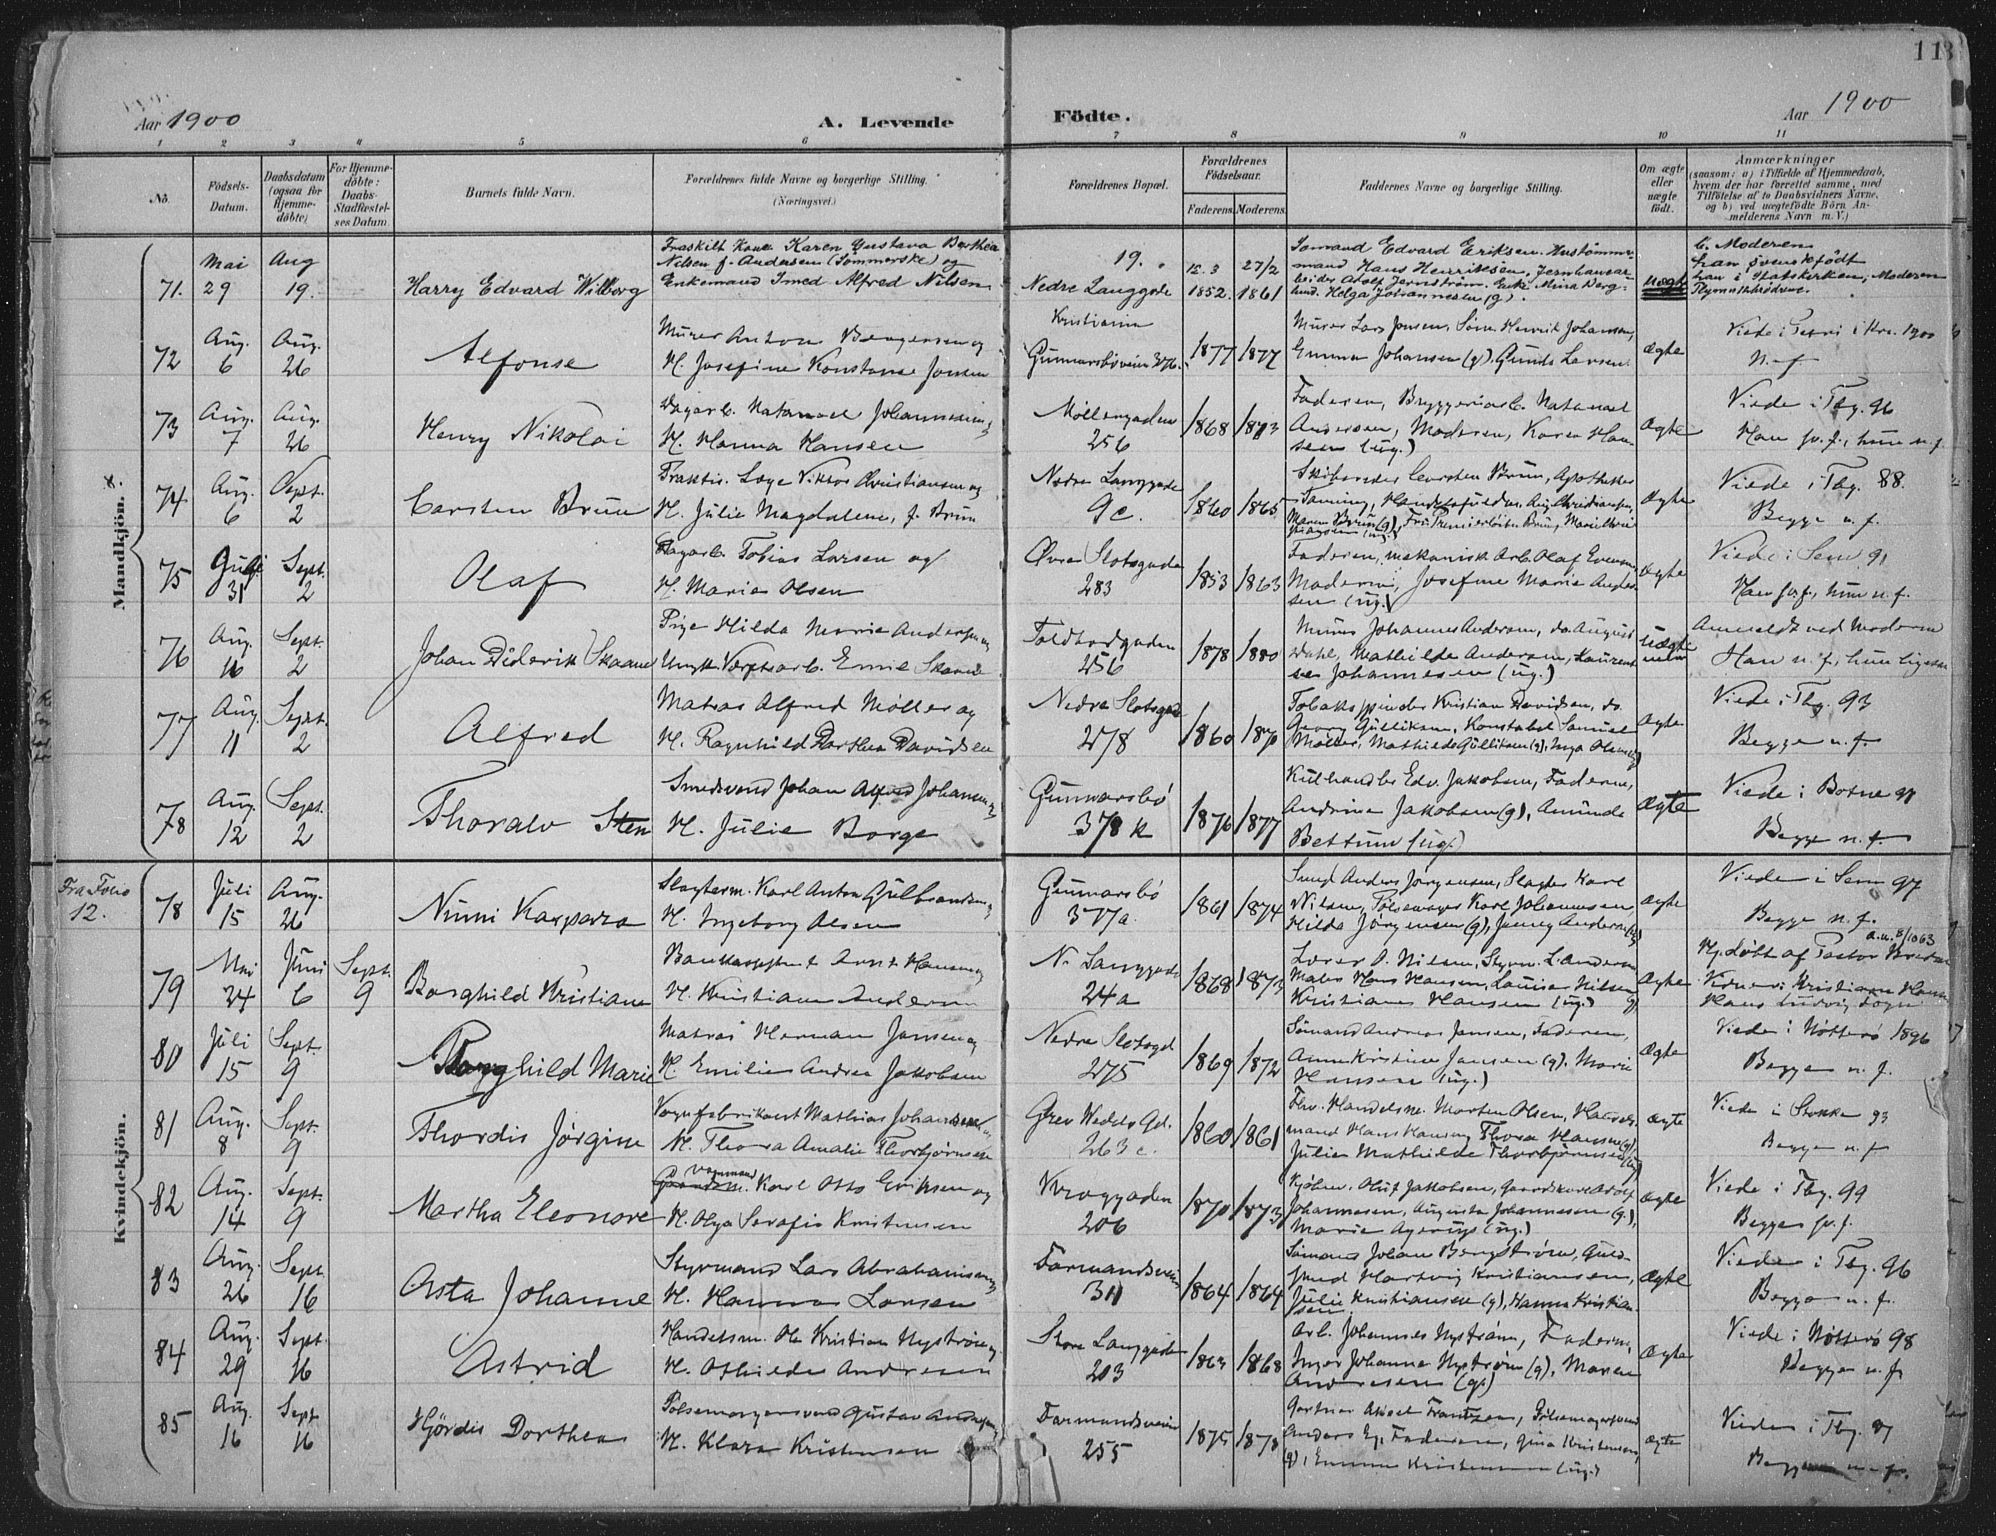 113
Aar 1900
A. Levende Födte.
Aar 1900
1 2 3 4 5 6 7 8 9 10 11
No.
Födsels-Datum.
Daabsdatum (ogsaa for Hjemme-döbte)
For Hjemme-döbte: Daabs-Stadfæstel-ses Datum.
Barnets fulde Navn.
Forældrenes fulde Navne og borgerlige Stilling. (Næringsvei.)
Forældrenes Bopæl.
Forældrenes Födselsaar.
Faderens. Moderens.
Faddernes Navne og borgerlige Stilling.
Om ægte eller uægte födt.
Anmærkninger
(saasom: a) i Tilfælde af Hjemmedaab,
hvem der har forrettet samme, med
Tilföielse af to Daabsvidners Navne,
og b) ved uægtefödte Börn An-
melderens Navn m. V.)
Mandkjön.
71. Mai 29 Aug 19. Harry Edvard Wilborg
Fraskilt Kone Karen Gustava Berthea
Nilsen f. Andersen (Sömmerske) og
Enkemand Smed Alfred Nilsen
19. Nedre Langgade
12.3 1852. 27/2 1861
Sömand Edvard Eriksen, Hustömmer-
mand Hans Henriksen, Jernbanear-
beider Adolf Jernström, Enke Mina Berg-
lund. Helga Johannesen (g).
uægte
b. Moderen
han svenskfödt
han i Statskirken, Moderen
Plymuthbrödrene.
72 Aug. 6 Aug. 26 Alfonse
Murer Anton Bergersen og
H. Josefine Konstanse Jonsen
Kristiania
Gunnarsböveien 376.
1877 1877
Murer Lars Jensen, Söm. Henrik Johansen,
Emma Johansen (g), Gunda Larsen.
Ægte
Viede i Petri i Kra. 1900
n. f
73 Aug. 7 Aug. 26 Henry Nikolai
Dagarb. Natanael Johannessen og
H. Hanna Hansen
Möllegaden 256
1868 1873
Faderen, Bryggeriarb. Natanael
Andersen, Moderen, Karen Han-
sen (ug.)
Ægte
Viede i Tbg. 96
Han sv. f., hun n. f.
74 Aug. 6 Sept. 2 Carsten Bruun
Praktis. Læge Viktor Christiansen og
H. Julie Magdalene, f. Bruun
Nedre Langgade 9c.
1860 1865
Skibsreder Carsten Bruun, Apotheker
Ægte
Viede i Tbg. 88.
Begge n. f.
75 Juli 31 Sept. 2 Olaf
Dagarb. Tobias Larsen og
H. Marie Olsen
Övre Slotsgade 283
1853 1863
Faderen, mekanisk Arb. Olaf Evensen,
Moderen, Josefine Marie Ander-
sen (ug.)
Ægte
Viede i Sem 91
Han sv. f., hun n. f.
76 Aug. 16 Sept. 2 Johan Diderik Skaane
Pige Hilda Marie Andersen og
Ungk. Værftsarb. Emil Skaane
Toldbodgaden 256
1878 1880
Murer Johannes Andersen, do. August
Dahl, Mathilde Andersen, Laurent-
se Johannesen (ug.)
Uægte
Anmeldt ved Moderen
Han n. f., hun ligesaa
77 Aug. 11 Sept. 2 Alfred
Matros Alfred Möller og
H. Ragnhild Dorthea Davidsen
Nedre Slotsgade 278
1860 1870
Tobakspinder Kristian Davidsen, do.
Georg Gulliksen, Konstabel Samuel
Möller, Mathilde Gulliksen (g), Inga Olsen (ug)
Ægte
Viede i Tbg. 93
Begge n. f.
78 Aug. 12 Sept. 2 Thoralv Sten
Smedsvend Johan Alfred Johansen og
H. Julie Borge
Gunnarsbö 378 k
1876 1877
Kulhandler Edv. Jakobsen, Faderen,
Andrine Jakobsen (g), Amunda
Bettum (ug.)
Ægte
Viede i Botne 97
Begge n. f.
Kvindekjön.
Fra Folio 12.
78 Juli 15 Aug. 26 Nunni Kaspara
Slagterm. Karl Anton Gulbrandsen og
H. Ingeborg Olsen
Gunnarsbö 377a.
1861 1874
Smed Anders Jörgensen, Slagter Karl
Nilsen, Pölsemager Karl Johannesen,
Hilda Jörgensen (g), Jenny Andersen (ug)
Ægte
Viede i Sem 97
Begge n. f.
79 Mai 24 Juni 6 Sept. 9 Borghild Kristiane
Bankassistent Arnt Hansen og
H. Kristiane Andersen
N. Langgade 24a
1868 1873
Lærer O. Nilsen, Styrm. L. Andersen
Hans Hansen, Louise Nilsen
Kristiane Hansen (ug.)
Ægte
Hj. döbt af Pastor
80 Juli 15 Sept. 9 Borghild Marie
Matros Herman Jansen og
H. Emilie Andrea Jakobsen
Nedre Slotsgd 275
1869 1872
Sömand Andreas Jansen, Faderen,
Anne Kristine Jansen (g), Marie
Hansen (ug.)
Ægte
Viede i Nötterö 1896
Begge n. f.
81 Aug. 8 Sept. 9 Thordis Jörgine
Vognfabrikant Mathias Johansen og
H. Thora Amalie Thorbjörnsen
Grev Wedels Gd. 263 c.
1860 1861
Fhv. Handelsm. Morten Olsen, Handels-
mand Hans Hansen, Thora Hansen (g)
Julie Mathilde Thorbjörnsen (ug)
ægte
Viede i Stokke 93
Begge n. f
82 Aug. 14 Sept. 9 Martha Eleonore
Karl Otto Eriksen og
H. Olga Serafia Kristensen
Kroggaden 206
1870 1873
Kjöbm. Oluf Jakobsen, Gaardskarl Adolf
Johannesen, Augusta Johannesen (g),
Marie Agerup (ug.)
Ægte
Viede i Tbg. 99
Begge sv. f.
83 Aug. 26 Sept. 16 Asta Johanne
Styrmand Lars Abrahamsen og
H. Hanna Larsen
Farmandsveien 311
1864 1864
Sömand Johan Bergström, Guld-
smed Hartvig Kristiansen,
Julie Kristiansen (g), Hanna Kristian-
sen
Ægte
Viede i Tbg. 96
Begge n. f.
84 Aug. 29 Sept. 16 Astrid
Handelsm. Ole Kristian Nyström og
H. Othilde Andresen
Store Langgade 203
1863 1868
Arb. Johannes Nyström, Faderen,
Inger Johanne Nyström (g), Maren
Andresen (g.)
Ægte
Viede i Nötterö 98
Begge n. f.
85 Aug. 16 Sept. 16 Hjördis Dorthea
Pölsemagersvend Gustav Andersen og
H. Klara Kristensen
Farmandsveien 255
1875 1878
Gartner Aksel Frantzen, Pölsemagersvend
Anders Eg, Faderen, Gina Kristensen
(g), Emma Kristensen (ug.)
Ægte
Viede i Tbg. 97
Begge n. f.